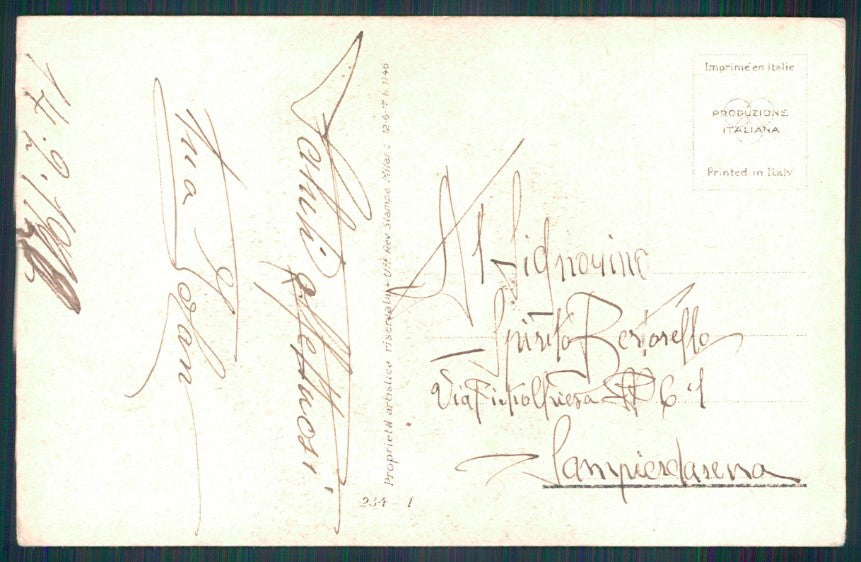 14.2.19
Saluti affettuosi
Proprietà artistica riservata - Uff. Rev. Stampa Milano 12-6-
234 - 1
Imprimé en Italie
PRODUZIONE
ITALIANA
Printed in Italy
Al Signorino
Spirito Bertorello
Via 6/1
Sampierdarena